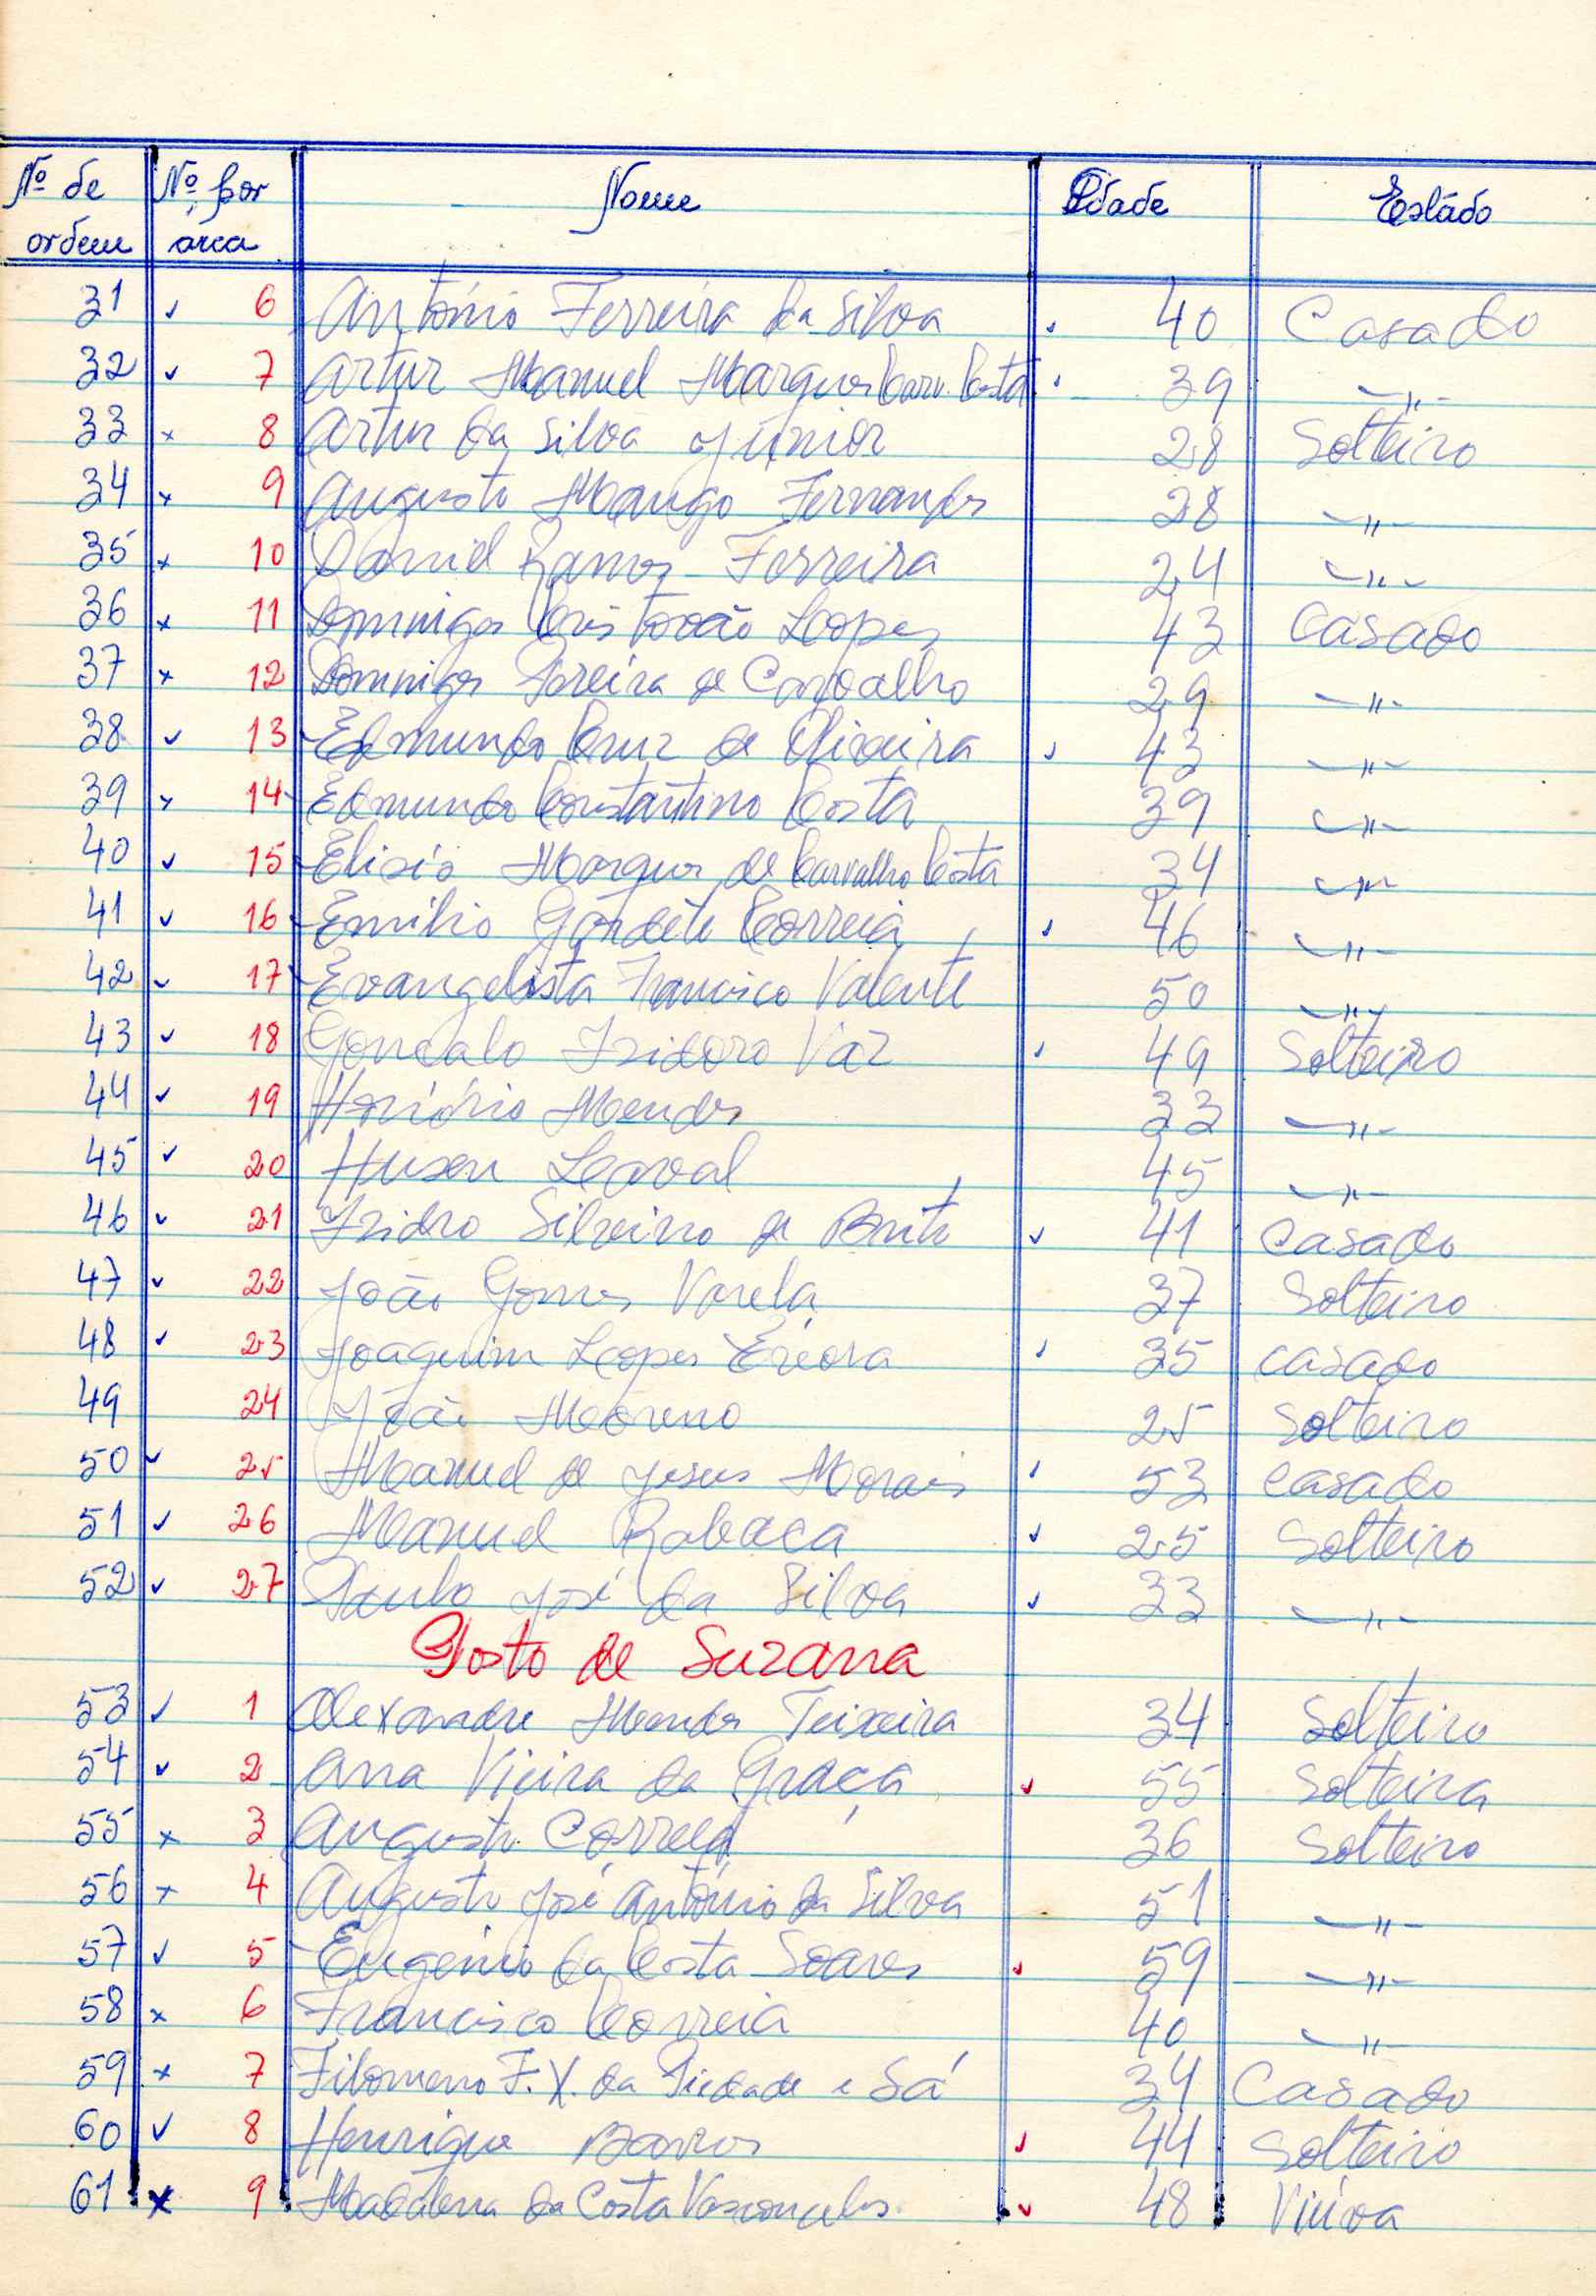 Nº de ordem Nº por área Nome Idade Estádo
31 ✓ 6 António Ferreira da Silva ✓ 40 Casado
32 ✓ 7 Artur Manuel Marques Carv. Costa ✓ 39 —"—
33 x 8 Artur da Silva Júnior 28 Solteiro
34 x 9 Augusto Mango Fernandes 28 —"—
35 x 10 Daniel Ramos Ferreira 24 —"—
36 x 11 Domingos Cristovão Lopes 43 Casado
37 x 12 Domingos Pereira de Carvalho 29 —"—
38 ✓ 13 Edmundo Cruz de Oliveira ✓ 43 —"—
39 x 14 Edmundo Constantino Costa 39 —"—
40 ✓ 15 Elisio Marques de Carvalho Costa 34 —"—
41 ✓ 16 Emilio Gardete Correia ✓ 46 —"—
42 ✓ 17 Evangelista Francisco Valente 50 —"—
43 ✓ 18 Goncalo Izidoro Vaz ✓ 49 Solteiro
44 ✓ 19 Honório Mendes 33 —"—
45 ✓ 20 Husen Laval 45 —"—
46 ✓ 21 Izidro Silveiro de Brito ✓ 41 Casado
47 ✓ 22 João Gomes Varela 37 Solteiro
48 ✓ 23 Joaquim Lopes Évora ✓ 35 casado
49 24 João Moreno 25 Solteiro
50 ✓ 25 Manuel de Jesus Morais ✓ 53 casado
51 ✓ 26 Manuel Rabaca ✓ 25 Solteiro
52 ✓ 27 Paulo José da Silva ✓ 33 —"—
Posto de Suzana
53 ✓ 1 Alexandre Mendes Teixeira 34 Solteiro
54 ✓ 2 Ana Vieira da Graça ✓ 55 Solteira
55 x 3 Augusto Correia 36 Solteiro
56 x 4 Augusto José António da Silva 51 —"—
57 ✓ 5 Eugénio da Costa Soares ✓ 59 —"—
58 x 6 Francisco Correia 40 —"—
59 x 7 Filomeno F. X. da Piedade e Sá 34 Casado
60 ✓ 8 Henrique Barros ✓ 44 Solteiro
61 x 9 Madalena da Costa Vasconcelos ✓ 48 Viúva